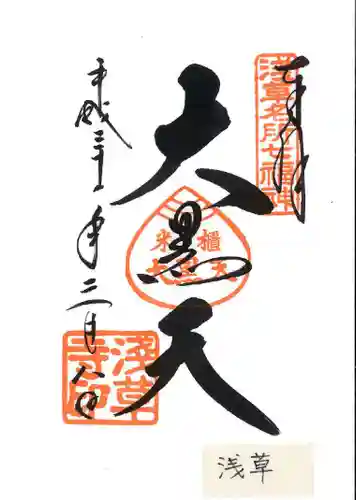 奉拝
浅草名所七福神
大黒天
米櫃
大黒天
平成二十
年二月八日
浅草
寺印
浅草